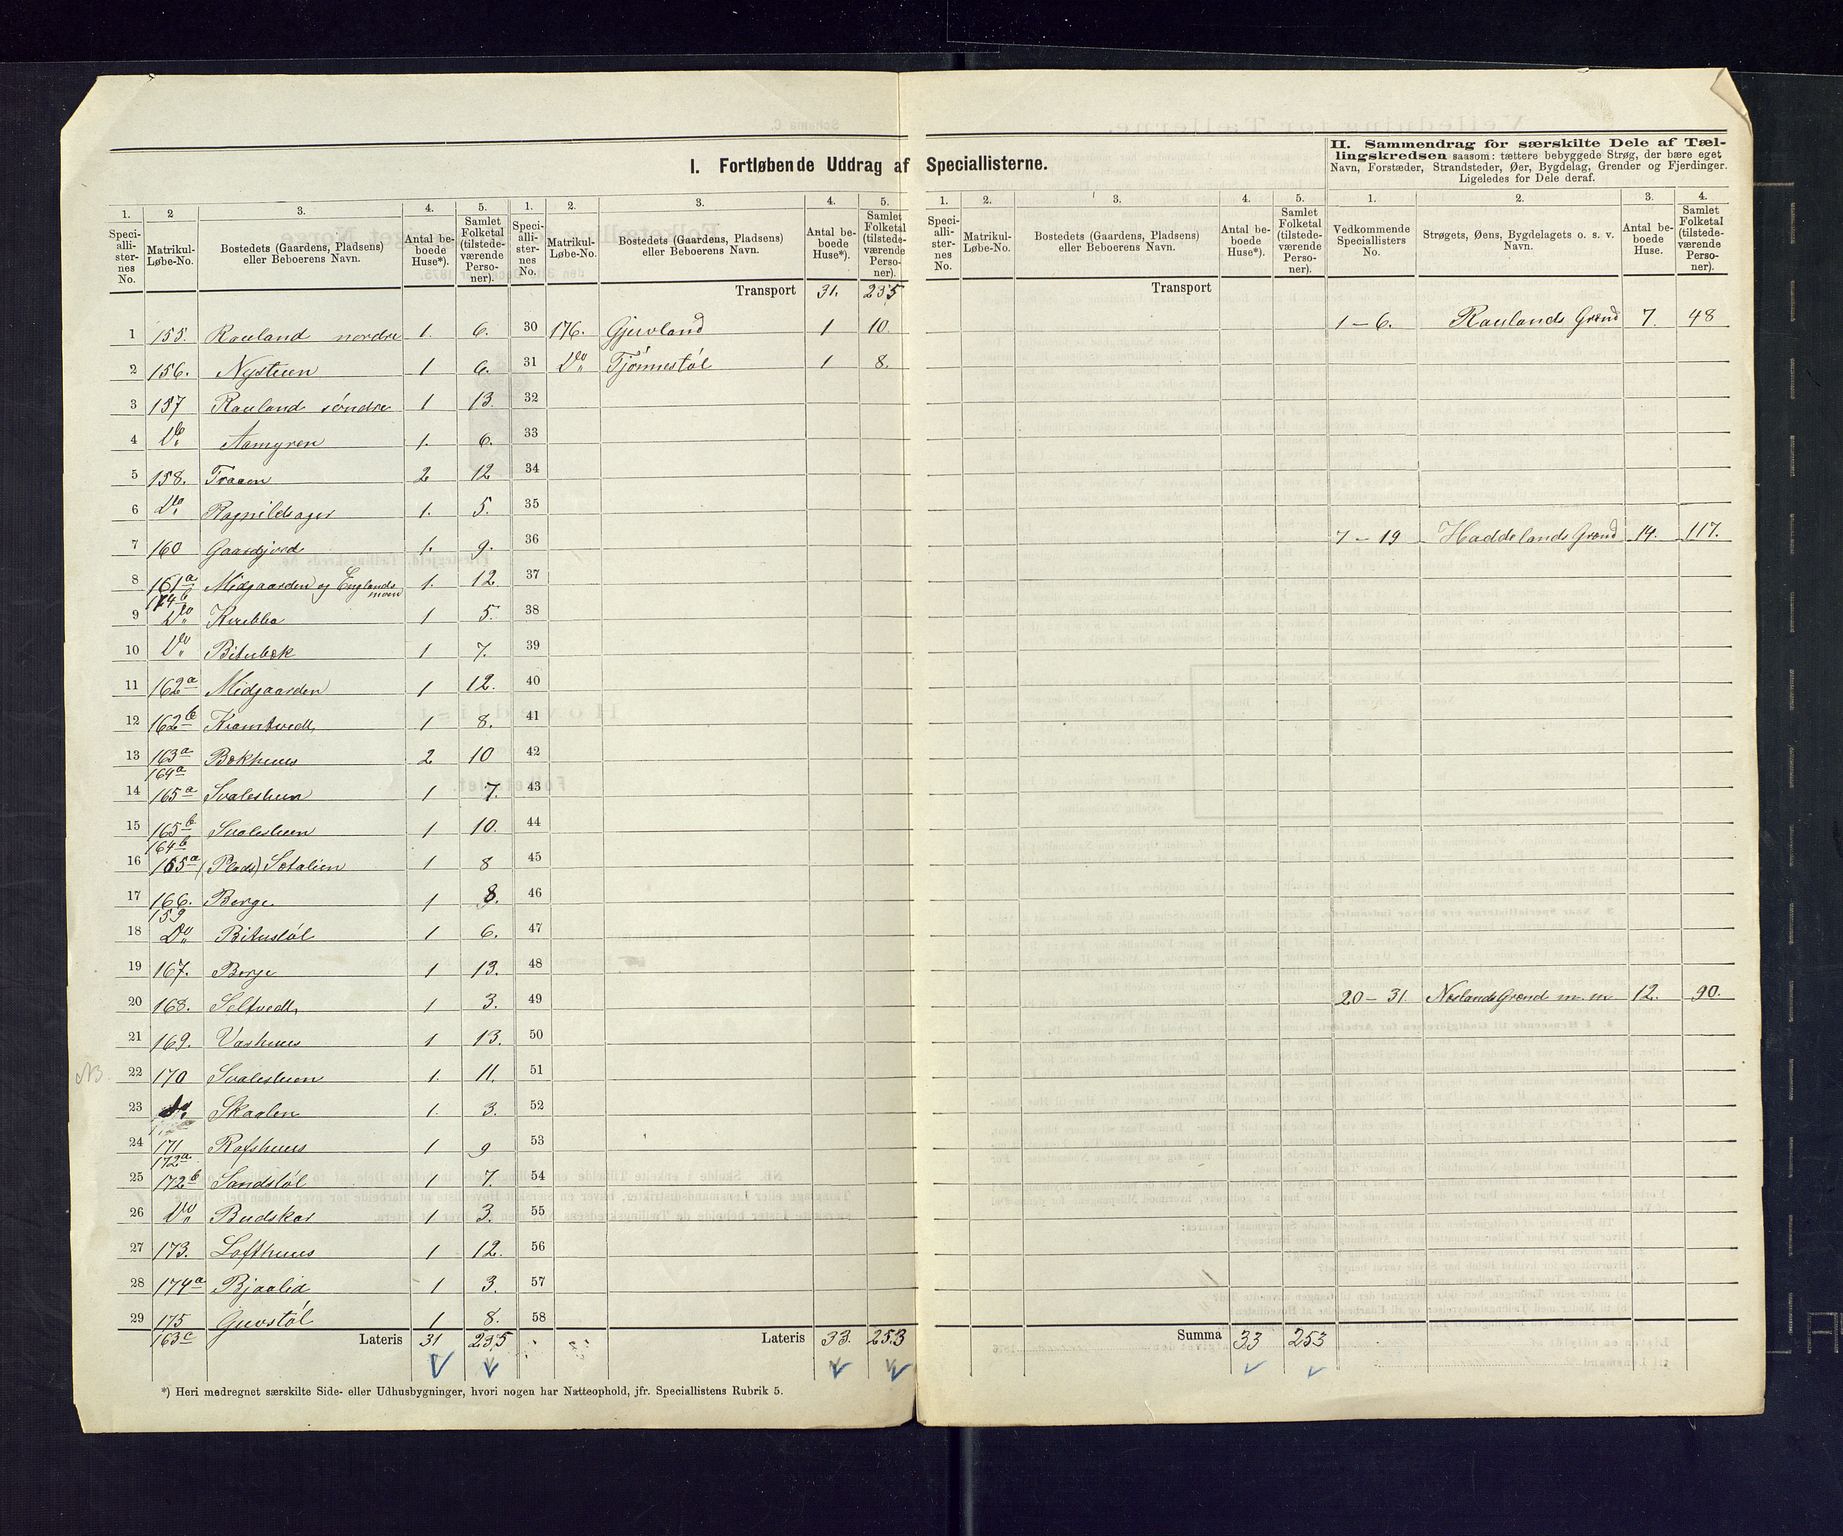 I. Fortløbende Uddrag af Speciallisterne.
II. Sammendrag for særskilte Dele af Tæl-
lingskredsen saasom: tættere bebyggede Strøg, der bære eget
Navn, Forstæder, Strandsteder, Øer, Bygdelag, Grender og Fjerdinger.
Ligeledes for Dele deraf.
1. 2 3. 4. 5. 1. 2. 3. 4. 5. 1. 2. 3. 4. 5. 1. 2. 3. 4.
Speciallisternes No. Matrikul-Løbe-No. Bostedets (Gaardens, Pladsens) eller Beboerens Navn. Antal beboede Huse*). Samlet Folketal (tilstedeværende Personer).
Speciallisternes No. Matrikul-Løbe-No. Bostedets (Gaardens, Pladsens) eller Beboerens Navn. Antal beboede Huse*). Samlet Folketal (tilstedeværende Personer).
Speciallisternes No. Matrikul-Løbe-No. Bostedets (Gaardens, Pladsens) eller Beboerens Navn. Antal beboede Huse*). Samlet Folketal (tilstedeværende Personer).
Vedkommende Speciallisters No. Strøgets, Øens, Bygdelagets o. s. v. Navn. Antal beboede Huse. Samlet Folketal (tilstedeværende Personer).
1 155. Rauland nordre 1. 6.
2 156. Nystuen 1 6.
3 157 Rauland søndre 1 13.
4 Do. Aamyren 1. 6.
5 158. Traaen 2 12
6 Do. Ragnildsager 1. 5.
7 160 Gaardjord 1. 9.
8 161a Midgaarden og Englands 1. 12
174b moen
9 Do. Kvæblia 1 5.
10 Do. Bitubæk 1 7.
11 162a Midgaarden 1 12.
12 162b Kramtvedt 1 8.
13 163a Bækhuus 2 10
164a
14 165a Svalestuen 1 7.
15 165b Svalestuen 1 10.
164b
16 165a (Plads) Sætalien 1 8
17 166. Berge 1 8.
159
18 Do. Bitustøl 1 6.
19 167. Berge 1 13.
20 168. Seltvedt 1 3.
21 169. Vashuus 1 13.
NB. 22 170 Svalestuen 1. 11.
23 Do. Skaalen 1. 3.
24 171 Rofshuus 1 9
172a
25 172b Sandstøl 1 7.
26 Do. Budskar 1 3.
27 173. Lofthuus 1 12.
28 174a Bjaalid 1 3.
29 175 Guvstøl 1 8.
163c Lateris 31 235
Transport 31. 235
30 176. Gjuvland 1 10.
31 Do. Tjønnestøl 1 8.
32
33
34
35
36
37
38
39
40
41
42
43
44
45
46
47
48
49
50
51
52
53
54
55
56
57
58
Lateris 33. 253
Transport
Summa 33 253
1 - 6. Raulands Grend 7. 48
7 - 19 Haddelands Grend 14. 117.
20 - 31. Næslands Grend m. m 12. 90.
*) Heri medregnet særskilte Side- eller Udhusbygninger, hvori nogen har Natteophold, jfr. Speciallistens Rubrik 5.